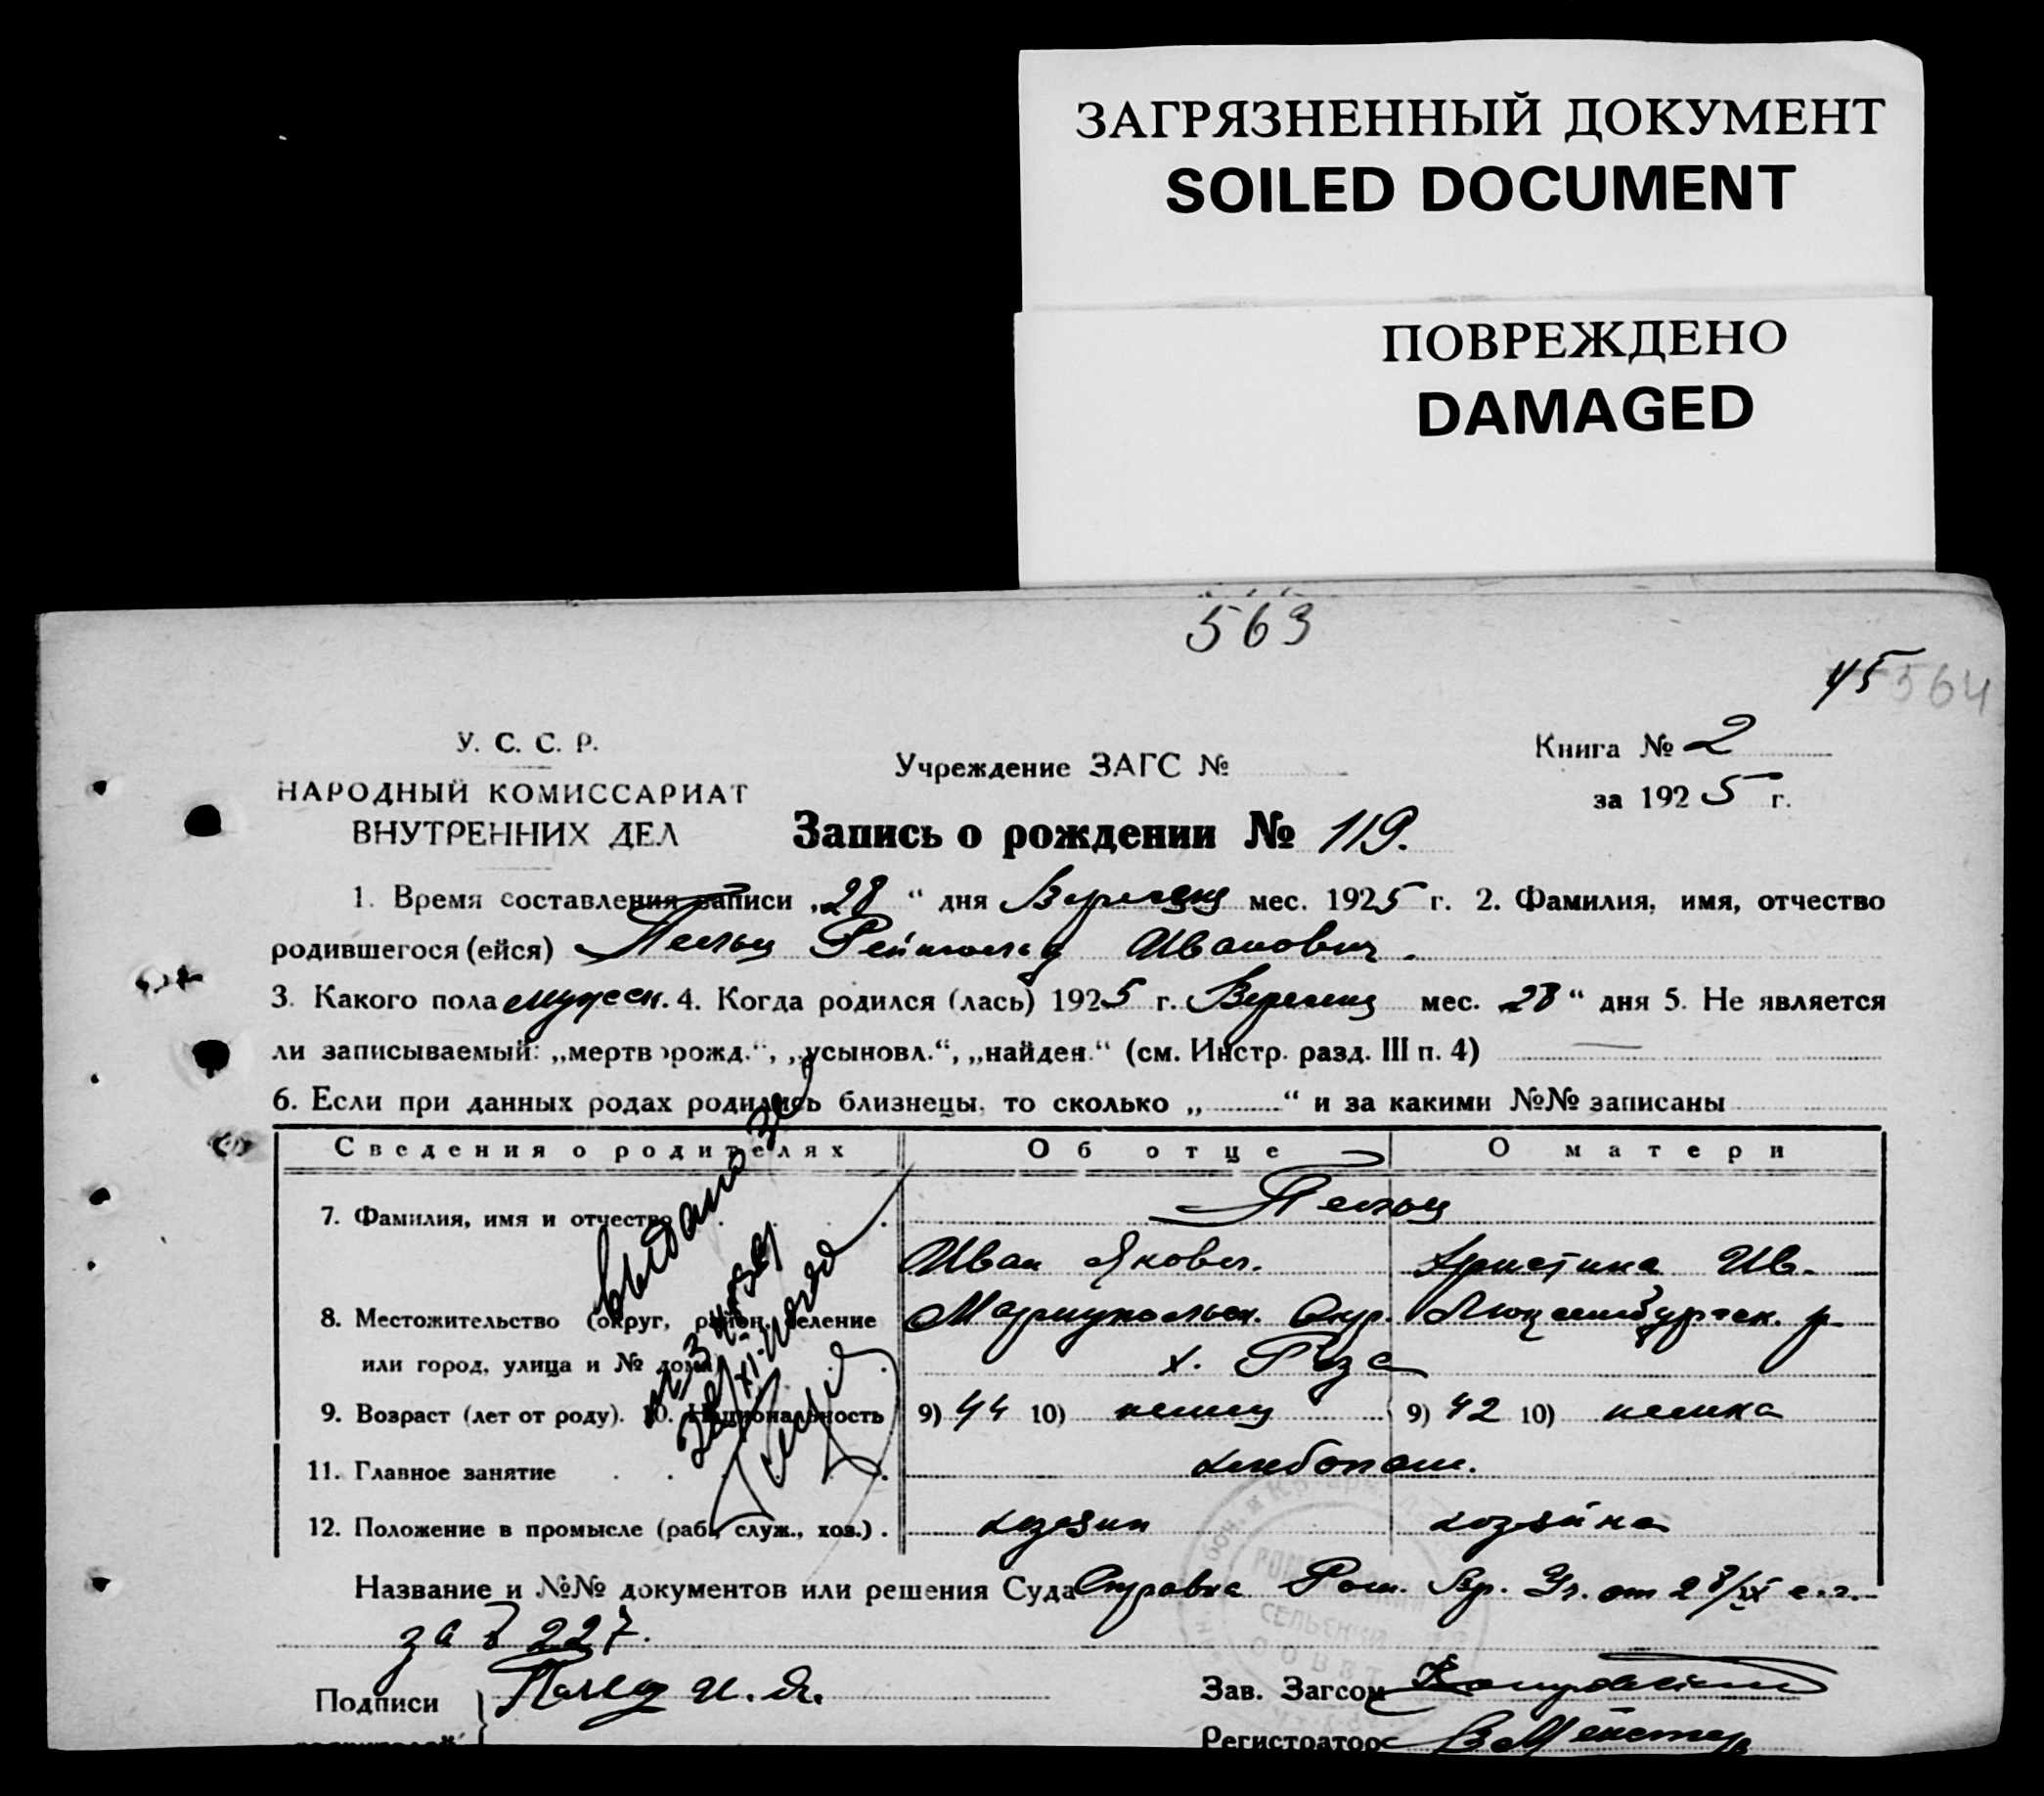 ЗАГРЯЗНЕННЫЙ ДОКУМЕНТ
SOILED DOCUMENT
ПОВРЕЖДЕНО
DAMAGED
563
45 564
У. С. С. Р.
НАРОДНЫЙ КОМИССАРИАТ
ВНУТРЕННИХ ДЕЛ
Учреждение ЗАГС №
Книга № 2
за 1925 г.
Запись о рождении № 119.
1. Время составления записи „28 “ дня Вересень мес. 1925 г. 2. Фамилия, имя, отчество
родившегося (ейся) Пельц Рейнгольд Иванович.
3. Какого пола мужеск. 4. Когда родился (лась) 1925 г. Вересень мес. 28 “ дня 5. Не является
ли записываемый: „мертворожд.“, „усыновл.“, „найден.“ (см. Инстр. разд. III п. 4)
6. Если при данных родах родились близнецы, то сколько „ “ и за какими №№ записаны
Сведения о родителях Об отце О матери
7. Фамилия, имя и отчество Пельц
Иван Яковл. Христина Ив.
8. Местожительство (округ, район, селение Мариупольск. Окр. Люксембургск. р
или город, улица и № дома х.
9. Возраст (лет от роду). 10. Национальность 9) 44 10) немец 9) 42 10) немка
11. Главное занятие хлебопаш.
12. Положение в промысле (раб., служ., хоз.) . хозяин хозяйка
Название и №№ документов или решения Суда Справка от 28/IX с.г.
за № 227.
Подписи И. Я.
Зав. Загсом
Регистратор
выдано
СЕЛЬСКИЙ
СОВЕТ